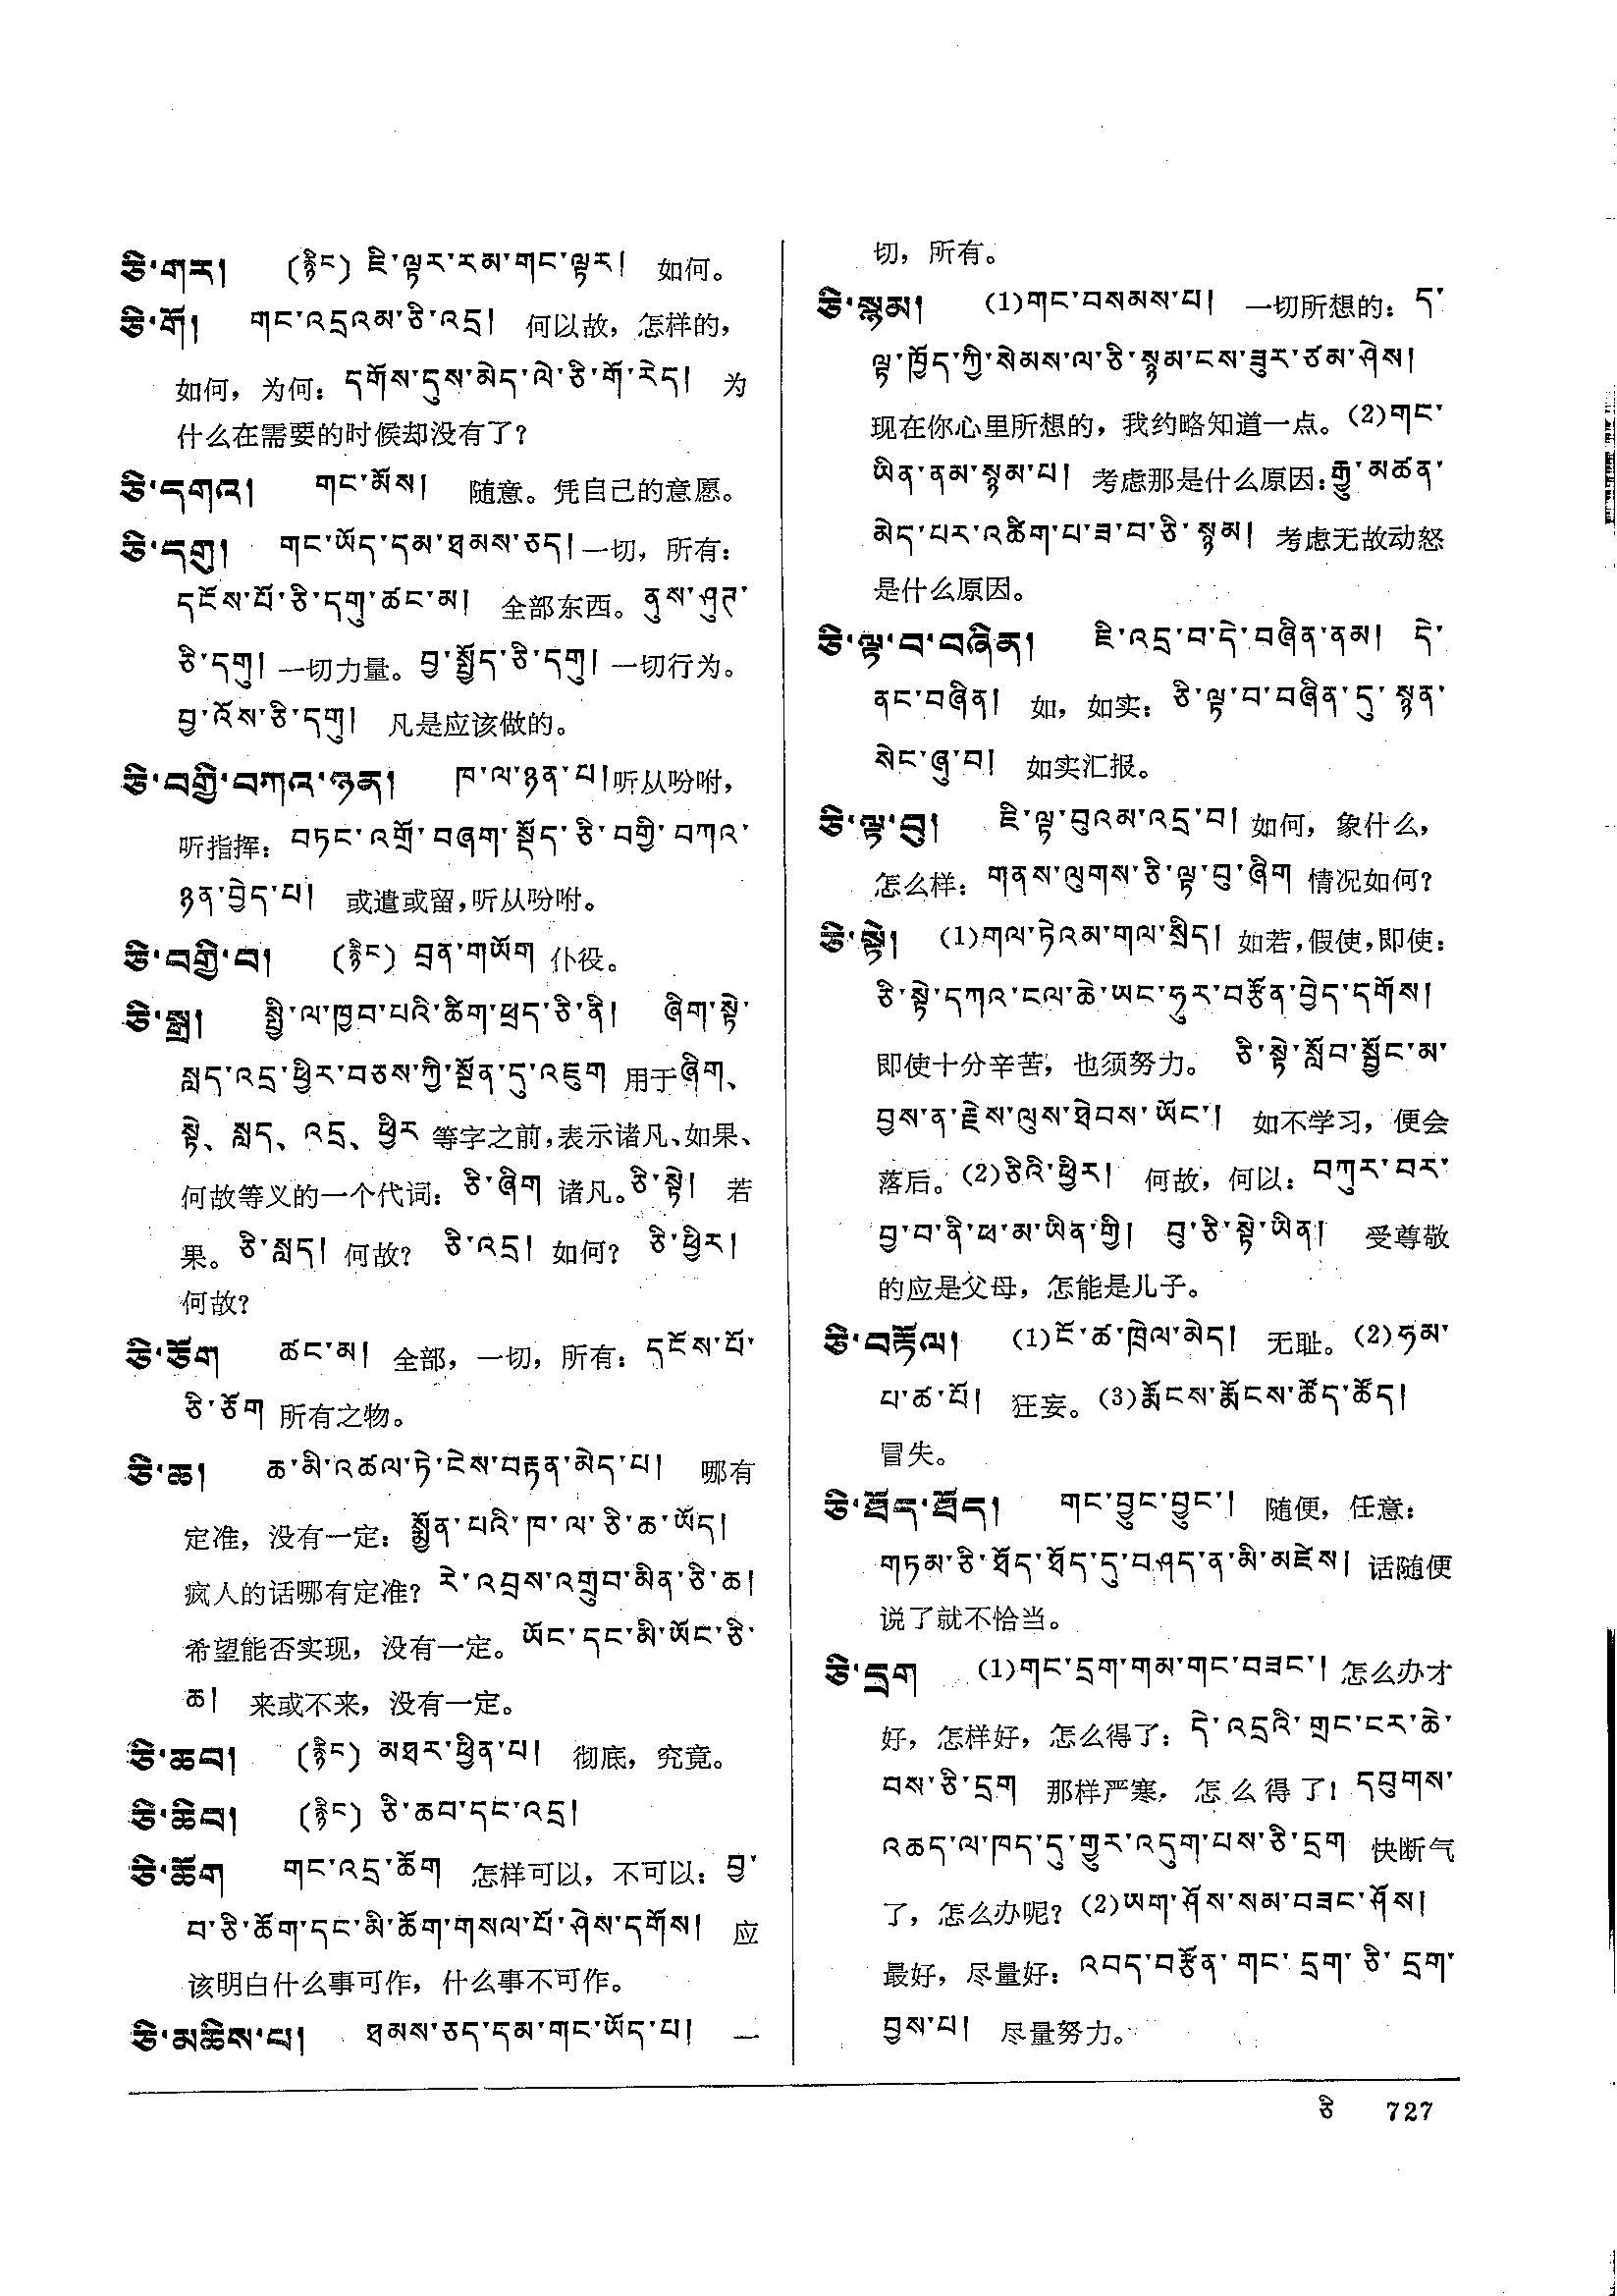 ཅི་གར། (རྙིང) ཇི་ལྟར་རམ་གང་ལྟར། 如何。
ཅི་གོ། གང་འདྲའམ་ཅི་འདྲ། 何以故，怎样的，
如何，为何：དགོས་དུས་མེད་ལེ་ཅི་གོ་རེད། 为
什么在需要的时候却没有了？
ཅི་དགའ། གང་མོས། 随意。凭自己的意愿。
ཅི་དགུ། གང་ཡོད་དམ་ཐམས་ཅད།一切，所有：
དངོས་པོ་ཅི་དགུ་ཚང་མ། 全部东西。ནུས་ཤུཊ་
ཅི་དགུ།一切力量。བྱ་སྤྱོད་ཅི་དགུ།一切行为。
བྱ་འོས་ཅི་དགུ། 凡是应该做的。
ཅི་བགྱི་བཀའ་ཉན། ཁ་ལ་ཉན་པ།听从吩咐，
听指挥：བཏང་འགྲོ་བཞག་སྡོད་ཅི་བགྱི་བཀའ་
ཉན་བྱེད་པ། 或遣或留，听从吩咐。
ཅི་བགྱི་བ། (རྙིང) བྲན་གཡོག 仆役。
ཅི་སྒྲ། སྤྱི་ལ་ཁྱབ་པའི་ཚིག་ཕྲད་ཅི་ནི། ཞིག་སྟེ་
སླད་འདྲ་ཕྱིར་བཅས་ཀྱི་སྔོན་དུ་འཇུག 用于ཞིག、
སྟེ、སླད、འདྲ、ཕྱིར 等字之前，表示诸凡、如果、
何故等义的一个代词：ཅི་ཞིག 诸凡。ཅི་སྟེ། 若
果。ཅི་སླད། 何故？ ཅི་འདྲ། 如何？ ཅི་ཕྱིར།
何故？
ཅི་ཅོག ཚང་མ། 全部，一切，所有：དངོས་པོ་
ཅི་ཅོག 所有之物。
ཅི་ཆ། ཆ་མི་འཚལ་ཏེ་ངེས་བརྟན་མེད་པ། 哪有
定准，没有一定：སྨྱོན་པའི་ཁ་ལ་ཅི་ཆ་ཡོད།
疯人的话哪有定准？རེ་འབྲས་འགྲུབ་མིན་ཅི་ཆ།
希望能否实现，没有一定。ཡོང་དང་མི་ཡོང་ཅི་
ཆ། 来或不来，没有一定。
ཅི་ཆབ། (རྙིང) མཐར་ཕྱིན་པ། 彻底，究竟。
ཅི་ཆིབ། (རྙིང) ཅི་ཆབ་དང་འདྲ།
ཅི་ཆོག གང་འདྲ་ཆོག 怎样可以，不可以：བྱ་
བ་ཅི་ཆོག་དང་མི་ཆོག་གསལ་པོ་ཤེས་དགོས། 应
该明白什么事可作，什么事不可作。
ཅི་མཆིས་པ། ཐམས་ཅད་དམ་གང་ཡོད་པ། 一
切，所有。
ཅི་སྙམ། (1)གང་བསམས་པ། 一切所想的：ད་
ལྟ་ཁྱོད་ཀྱི་སེམས་ལ་ཅི་སྙམ་ངས་ཟུར་ཙམ་ཤེས།
现在你心里所想的，我约略知道一点。(2)གང་
ཡིན་ནམ་སྙམ་པ། 考虑那是什么原因：རྒྱུ་མཚན་
མེད་པར་འཚིག་པ་ཟ་བ་ཅི་སྙམ། 考虑无故动怒
是什么原因。
ཅི་ལྟ་བ་བཞིན། ཇི་འདྲ་བ་དེ་བཞིན་ནམ། དེ་
ནང་བཞིན། 如，如实：ཅི་ལྟ་བ་བཞིན་དུ་སྙན་
སེང་ཞུ་བ། 如实汇报。
ཅི་ལྟ་བུ། ཇི་ལྟ་བུའམ་འདྲ་བ། 如何，象什么，
怎么样：གནས་ལུགས་ཅི་ལྟ་བུ་ཞིག 情况如何？
ཅི་སྟེ། (1)གལ་ཏེའམ་གལ་སྲིད། 如若，假使，即使：
ཅི་སྟེ་དཀའ་ངལ་ཆེ་ཡང་ཧུར་བརྩོན་བྱེད་དགོས།
即使十分辛苦，也须努力。 ཅི་སྟེ་སློབ་སྦྱོང་མ་
བྱས་ན་རྗེས་ལུས་ཐེབས་ཡོང་། 如不学习，便会
落后。(2)ཅིའི་ཕྱིར། 何故，何以：བཀུར་བར་
བྱ་བ་ནི་ཕ་མ་ཡིན་གྱི། བུ་ཅི་སྟེ་ཡིན། 受尊敬
的应是父母，怎能是儿子。
ཅི་བརྟོལ། (1)ངོ་ཚ་ཁྲེལ་མེད། 无耻。(2)ཧམ་
པ་ཚ་པོ། 狂妄。(3)རྨོངས་རྨོངས་ཚོད་ཚོད།
冒失。
ཅི་ཐོད་ཐོད། གང་བྱུང་བྱུང་། 随便，任意：
གཏམ་ཅི་ཐོད་ཐོད་དུ་བཤད་ན་མི་མཛེས། 话随便
说了就不恰当。
ཅི་དྲག (1)གང་དྲག་གམ་གང་བཟང་། 怎么办才
好，怎样好，怎么得了：དེ་འདྲའི་གྲང་ངར་ཆེ་
བས་ཅི་དྲག 那样严寒，怎么得了！དབུགས་
འཆད་ལ་ཁད་དུ་གྱུར་འདུག་པས་ཅི་དྲག 快断气
了，怎么办呢？(2)ཡག་ཤོས་སམ་བཟང་ཤོས།
最好，尽量好：འབད་བརྩོན་གང་དྲག་ཅི་དྲག་
བྱས་པ། 尽量努力。
ཅི 727